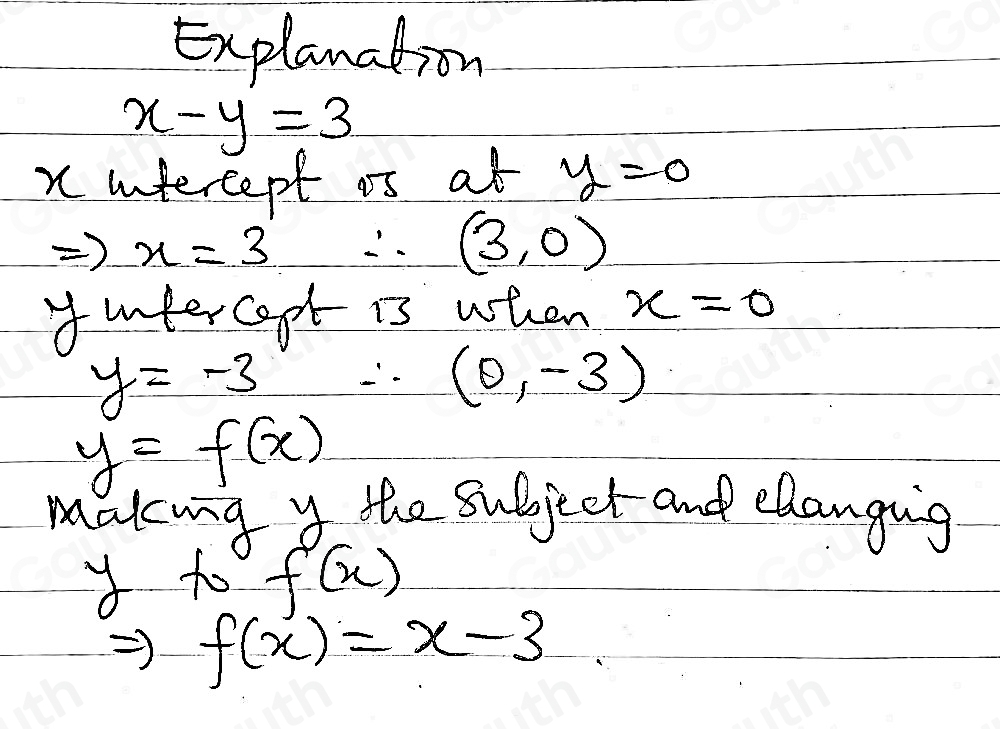 Explanation
x - y = 3
x intercept is at y = 0
⇒ x = 3 ∴ (3, 0)
y intercept is when x = 0
y = -3 ∴ (0, -3)
y = f(x)
Making y the subject and changing
y to f(x)
⇒ f(x) = x - 3